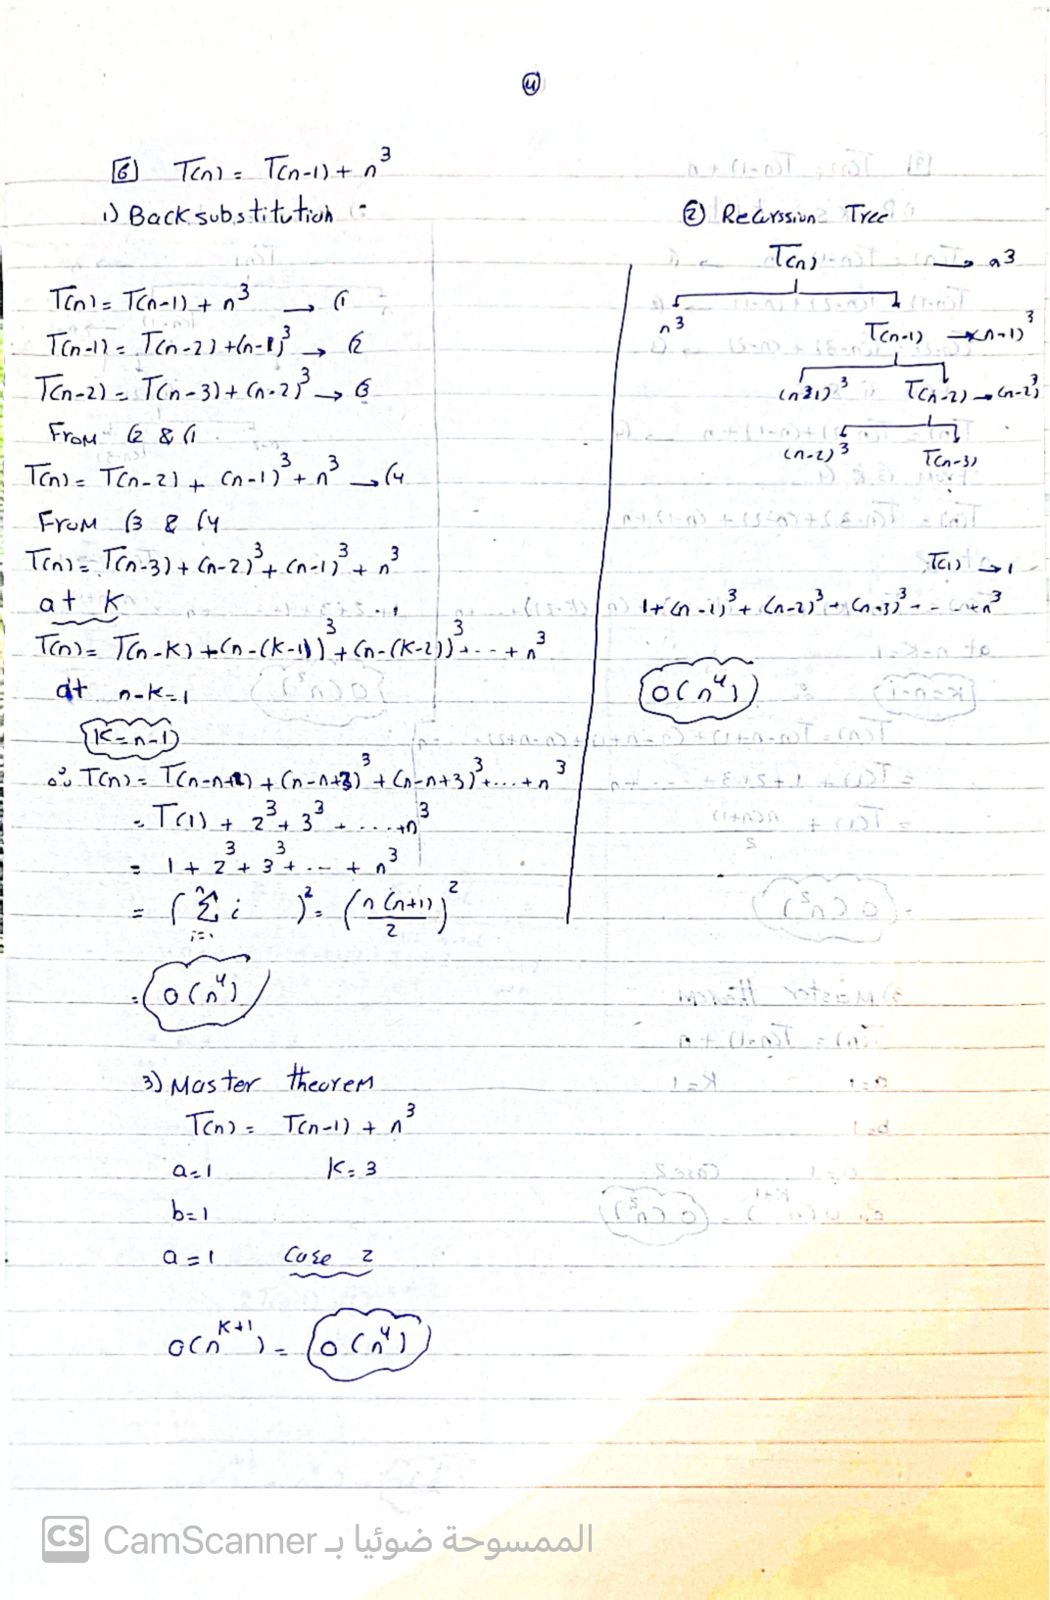 4
6 T(n) = T(n-1) + n^3
1) Back substitution :
T(n) = T(n-1) + n^3 → (1
T(n-1) = T(n-2) + (n-1)^3 → (2
T(n-2) = T(n-3) + (n-2)^3 → (3
From (2 & (1
T(n) = T(n-2) + (n-1)^3 + n^3 → (4
From (3 & (4
T(n) = T(n-3) + (n-2)^3 + (n-1)^3 + n^3
at K
T(n) = T(n-K) + (n-(K-1))^3 + (n-(K-2))^3 + ... + n^3
at n-K=1
K=n-1
∴ T(n) = T(n-n+1) + (n-n+2)^3 + (n-n+3)^3 + ... + n^3
= T(1) + 2^3 + 3^3 + ... + n^3
= 1 + 2^3 + 3^3 + ... + n^3
= (Σ i)^2 = (n(n+1)/2)^2
= O(n^4)
2 Recurssion Tree
T(n) → n^3
n^3 T(n-1) → (n-1)^3
(n-1)^3 T(n-2) → (n-2)^3
(n-2)^3 T(n-3)
T(1) → 1
1 + (n-1)^3 + (n-2)^3 + (n-3)^3 + - - + n^3
O(n^4)
3) Master theorem
T(n) = T(n-1) + n^3
a=1 K=3
b=1
a=1 Case 2
O(n^K+1) = O(n^4)
CS CamScanner الممسوحة ضوئيا بـ